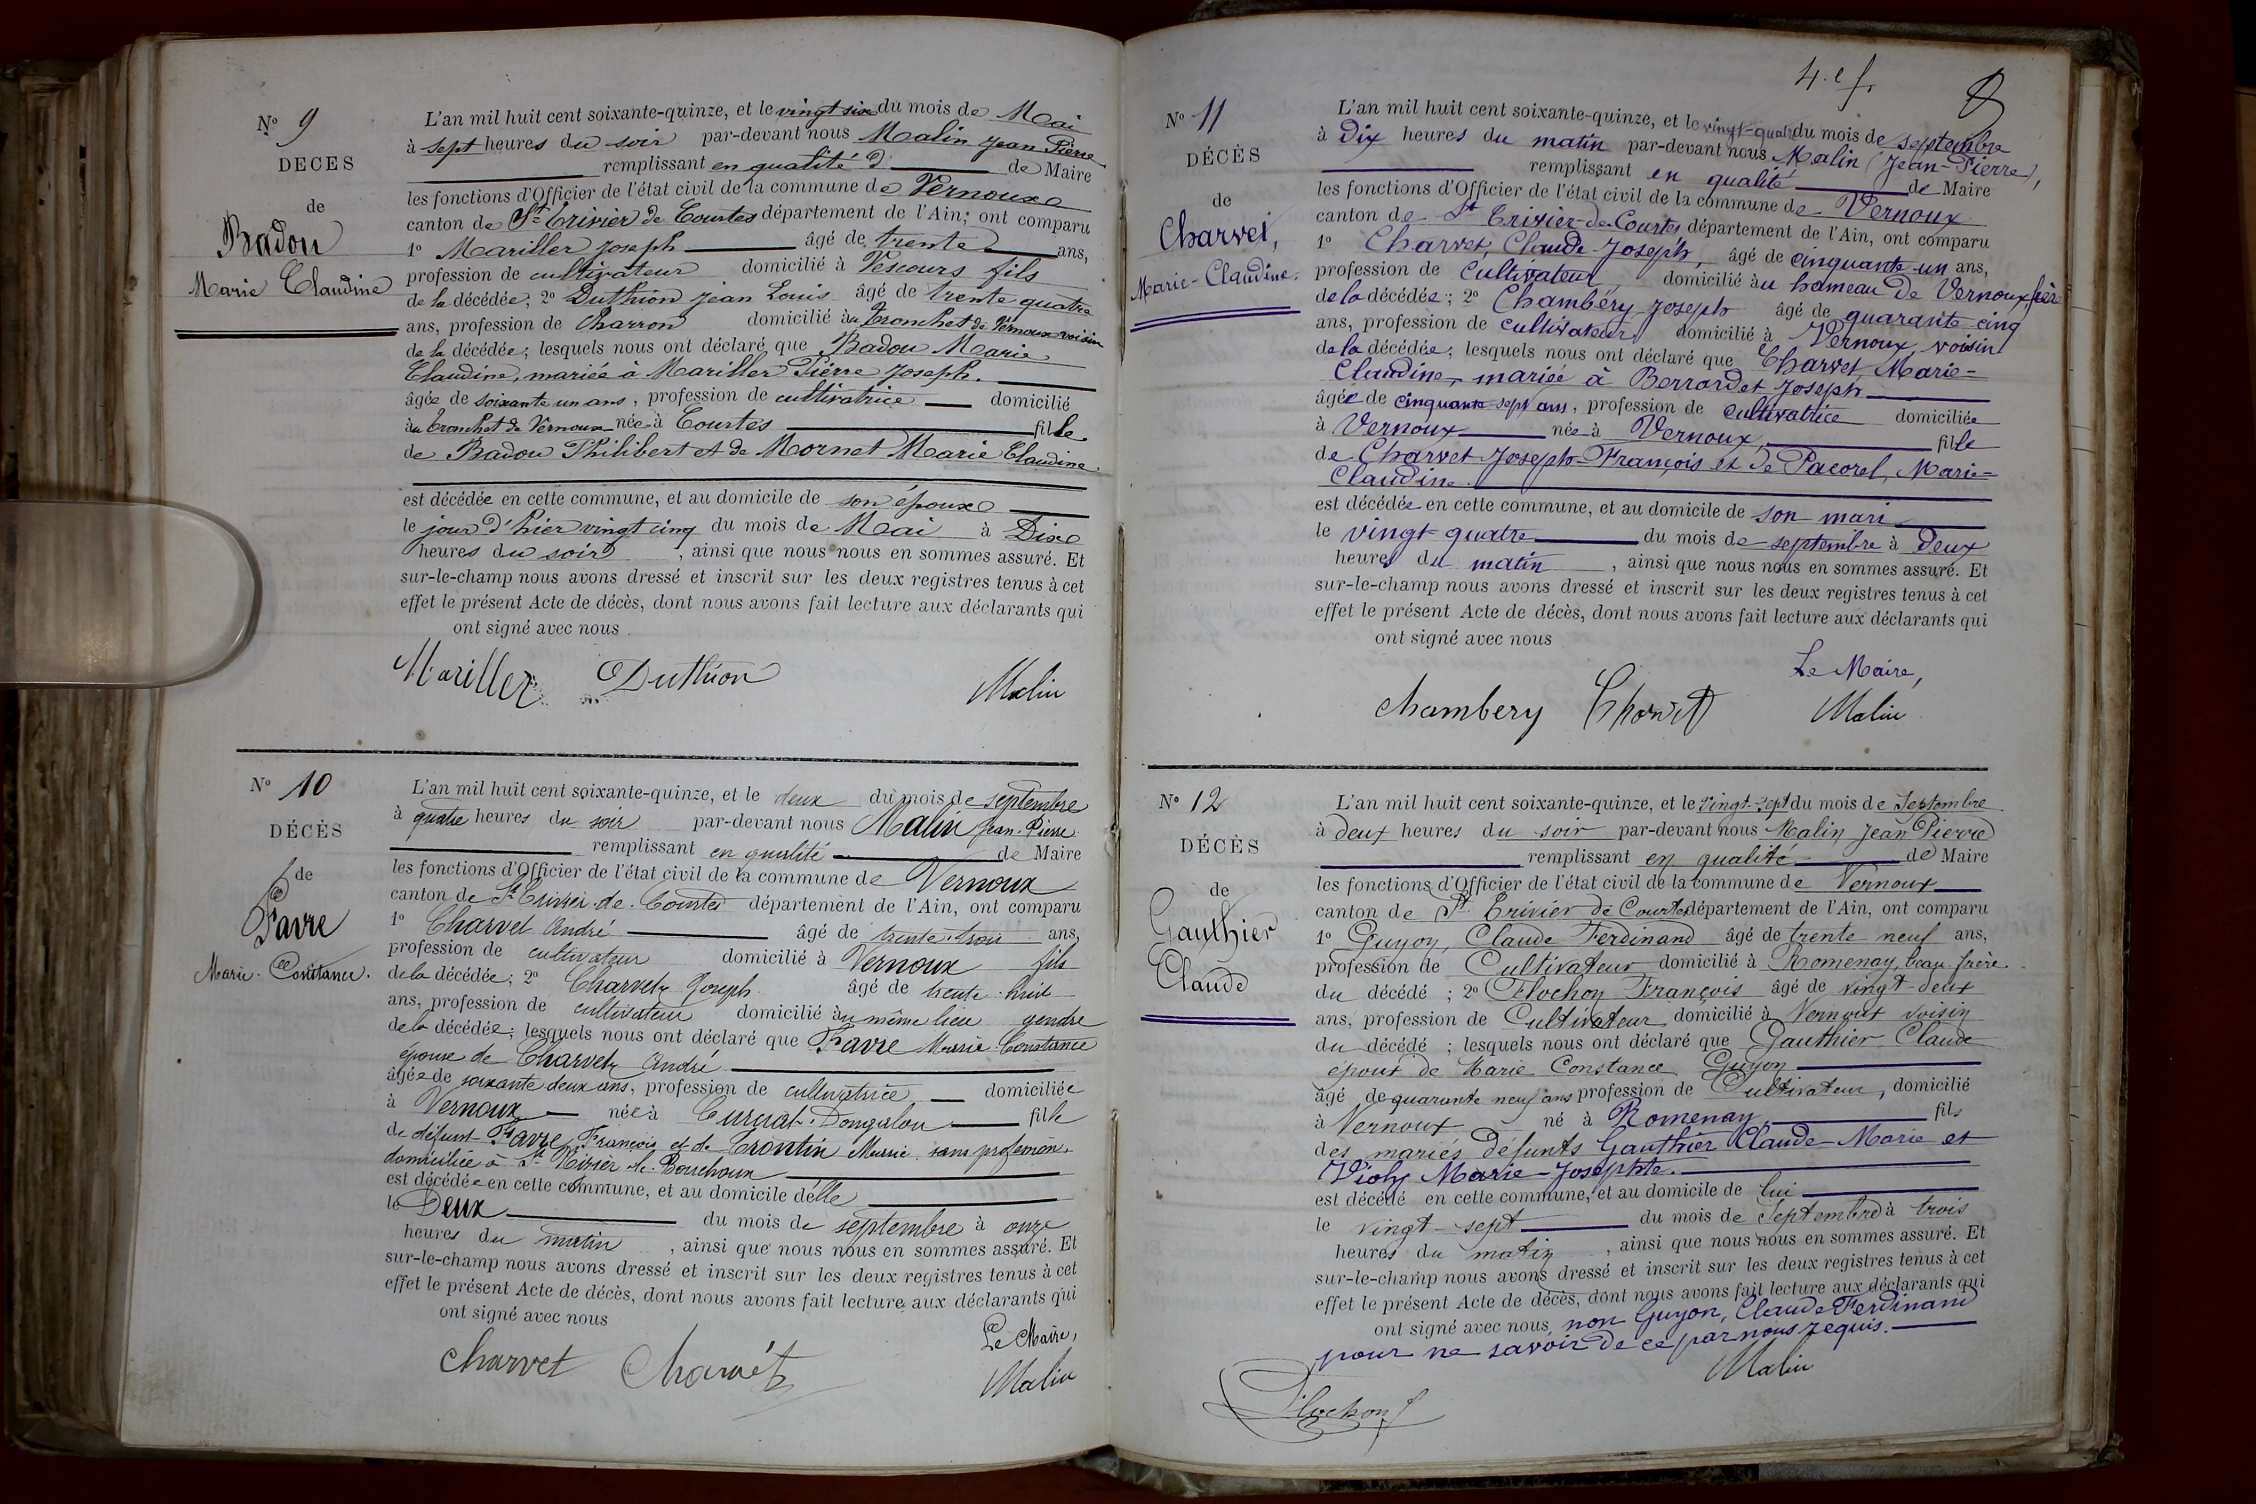 Nº 9
DÉCÈS
de
Badou
Marie Claudine
L'an mil huit cent soixante-quinze, et le vingt six du mois de Mai
à sept heures du soir par-devant nous Malin Jean Pierre
remplissant en qualité d de Maire
les fonctions d'Officier de l'état civil de la commune de Vernoux
canton de St Trivier de Courtes département de l'Ain, ont comparu
1º Mariller Joseph âgé de trente ans,
profession de cultivateur domicilié à Vescours fils
de la décédée; 2º Duthion jean Louis âgé de trente quatre
ans, profession de Charron domicilié au Tronchet de Vernoux voisin
de la décédée; lesquels nous ont déclaré que Badou Marie
Claudine, mariée à Mariller Pierre Joseph.
âgée de soixante un ans, profession de cultivatrice domicilié
au Tronchet de Vernoux née à Courtes fille
de Badou Philibert et de Mornet Marie Claudine.
est décédée en cette commune, et au domicile de son époux
le jour d'hier vingt cinq du mois de Mai à Dix
heures du soir, ainsi que nous nous en sommes assuré. Et
sur-le-champ nous avons dressé et inscrit sur les deux registres tenus à cet
effet le présent Acte de décès, dont nous avons fait lecture aux déclarants qui
ont signé avec nous.
Mariller Duthion Malin
Nº 10
DÉCÈS
de
Favre
Marie-Constance.
L'an mil huit cent soixante-quinze, et le deux du mois de septembre
à quatre heures du soir par-devant nous Malin Jean-Pierre
remplissant en qualité de Maire
les fonctions d'Officier de l'état civil de la commune de Vernoux
canton de St Trivier-de-Courtes département de l'Ain, ont comparu
1º Charvet André âgé de trente-trois ans,
profession de cultivateur domicilié à Vernoux fils
de la décédée; 2º Charvet Joseph âgé de trente-huit
ans, profession de cultivateur domicilié au même lieu gendre
de la décédée; lesquels nous ont déclaré que Favre Marie-Constance
épouse de Charvet André
âgée de soixante deux ans, profession de cultivatrice domiciliée
à Vernoux née à Curciat-Dongalon fille
de défunt Favre François et de Trontin Marie sans profession,
domiciliée à St Nizier-le-Bouchoux
est décédée en cette commune, et au domicile d'elle
le Deux du mois de septembre à onze
heures du matin, ainsi que nous nous en sommes assuré. Et
sur-le-champ nous avons dressé et inscrit sur les deux registres tenus à cet
effet le présent Acte de décès, dont nous avons fait lecture aux déclarants qui
ont signé avec nous
Le Maire,
Charvet Charvet Malin
4.e f. 8
Nº 11
DÉCÈS
de
Charvet,
Marie-Claudine.
L'an mil huit cent soixante-quinze, et le vingt-quatre du mois de septembre
à Dix heures du matin par-devant nous Malin (Jean-Pierre),
remplissant en qualité de Maire
les fonctions d'Officier de l'état civil de la commune de Vernoux
canton de St Trivier-de-Courtes département de l'Ain, ont comparu
1º Charvet, Claude-Joseph, âgé de cinquante-un ans,
profession de Cultivateur domicilié au hameau de Vernoux, frère
de la décédée; 2º Chambéry Joseph âgé de quarante-cinq
ans, profession de cultivateur domicilié à Vernoux, voisin
de la décédée; lesquels nous ont déclaré que Charvet, Marie-
Claudine, mariée à Berrardet Joseph
âgée de cinquante-sept ans, profession de cultivatrice domiciliée
à Vernoux née à Vernoux, fille
de Charvet Joseph-François et de Pacorel, Marie-
Claudine.
est décédée en cette commune, et au domicile de son mari
le vingt-quatre du mois de septembre à Deux
heures du matin, ainsi que nous nous en sommes assuré. Et
sur-le-champ nous avons dressé et inscrit sur les deux registres tenus à cet
effet le présent Acte de décès, dont nous avons fait lecture aux déclarants qui
ont signé avec nous
Le Maire,
Chambery Charvet Malin
Nº 12
DÉCÈS
de
Gauthier
Claude
L'an mil huit cent soixante-quinze, et le vingt-sept du mois de Septembre
à deux heures du soir par-devant nous Malin Jean Pierre
remplissant en qualité de Maire
les fonctions d'Officier de l'état civil de la commune de Vernoux
canton de St Trivier de Courtes département de l'Ain, ont comparu
1º Guyon, Claude Ferdinand âgé de trente neuf ans,
profession de Cultivateur domicilié à Romenay, beau-frère
du décédé; 2º Flochon François âgé de vingt-deux
ans, profession de Cultivateur domicilié à Vernoux voisin
du décédé; lesquels nous ont déclaré que Gauthier Claude
époux de Marie Constance Guyon
âgé de quarante neuf ans profession de Cultivateur, domicilié
à Vernoux né à Romenay fils
des mariés défunts Gauthier Claude-Marie et
Violy Marie-Josephte.
est décédé en cette commune, et au domicile de lui
le vingt-sept du mois de Septembre à trois
heures du matin, ainsi que nous nous en sommes assuré. Et
sur-le-champ nous avons dressé et inscrit sur les deux registres tenus à cet
effet le présent Acte de décès, dont nous avons fait lecture aux déclarants qui
ont signé avec nous, non Guyon, Claude Ferdinand
pour ne savoir de ce par nous requis.
Malin
Flochon f